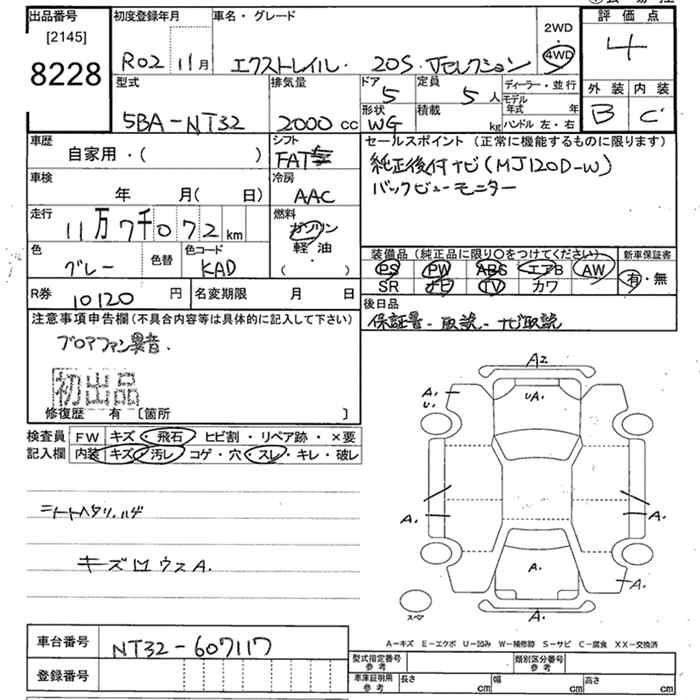 出品番号 初度登録年月 車名・グレード 評価点
[2145] 2WD
8228 R02 11月 エクストレイル・ 20S・Jセレクション 4WD 4
型式 排気量 ドア 定員 ディーラー・並行 外装 内装
5BA-NT32 2000cc 5 5人 モデル年式 年 B C
形状 積載 ハンドル 左・右
WG kg
車歴 シフト セールスポイント(正常に機能するものに限ります)
自家用・( ) FAT 純正後付ナビ(MJ120D-W)
車検 冷房 バックビューモニター
年 月(日) AAC
走行 燃料
11万7千072km ガソリン
軽・油
( )
色 色替 色コード 装備品(純正品に限り○をつけてください) 新車保証書
グレー KAD PS PW ABS エアB AW 有・無
SR ナビ TV カワ
R券 10120円 名変期限 月 日 後日品
保証書・取説・ナビ取説
注意事項申告欄(不具合内容等は具体的に記入して下さい)
ブロアファン異音.
初出品
修復歴 有 〔箇所 〕
検査員 FW キズ・飛石・ヒビ割・リペア跡・×要
記入欄 内装 キズ・汚レ・コゲ・穴・スレ・キレ・破レ
A2
A. U. UA.
シートヘタリ.ハゲ
A. A.
キズ凹ウスA. A.
A.
スペア A.
A-キズ E-エクボ U-凹み W-補修跡 S-サビ C-腐食 XX-交換済
車台番号 NT32-607117
登録番号
型式指定番号参考 類別区分番号参考
車庫証明用参考 長さ cm 幅 cm 高さ cm